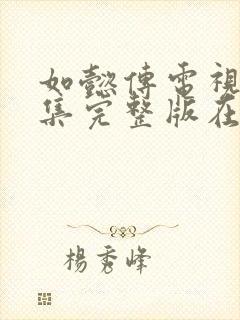 如懿傳電視
集完整版在
楊秀峰